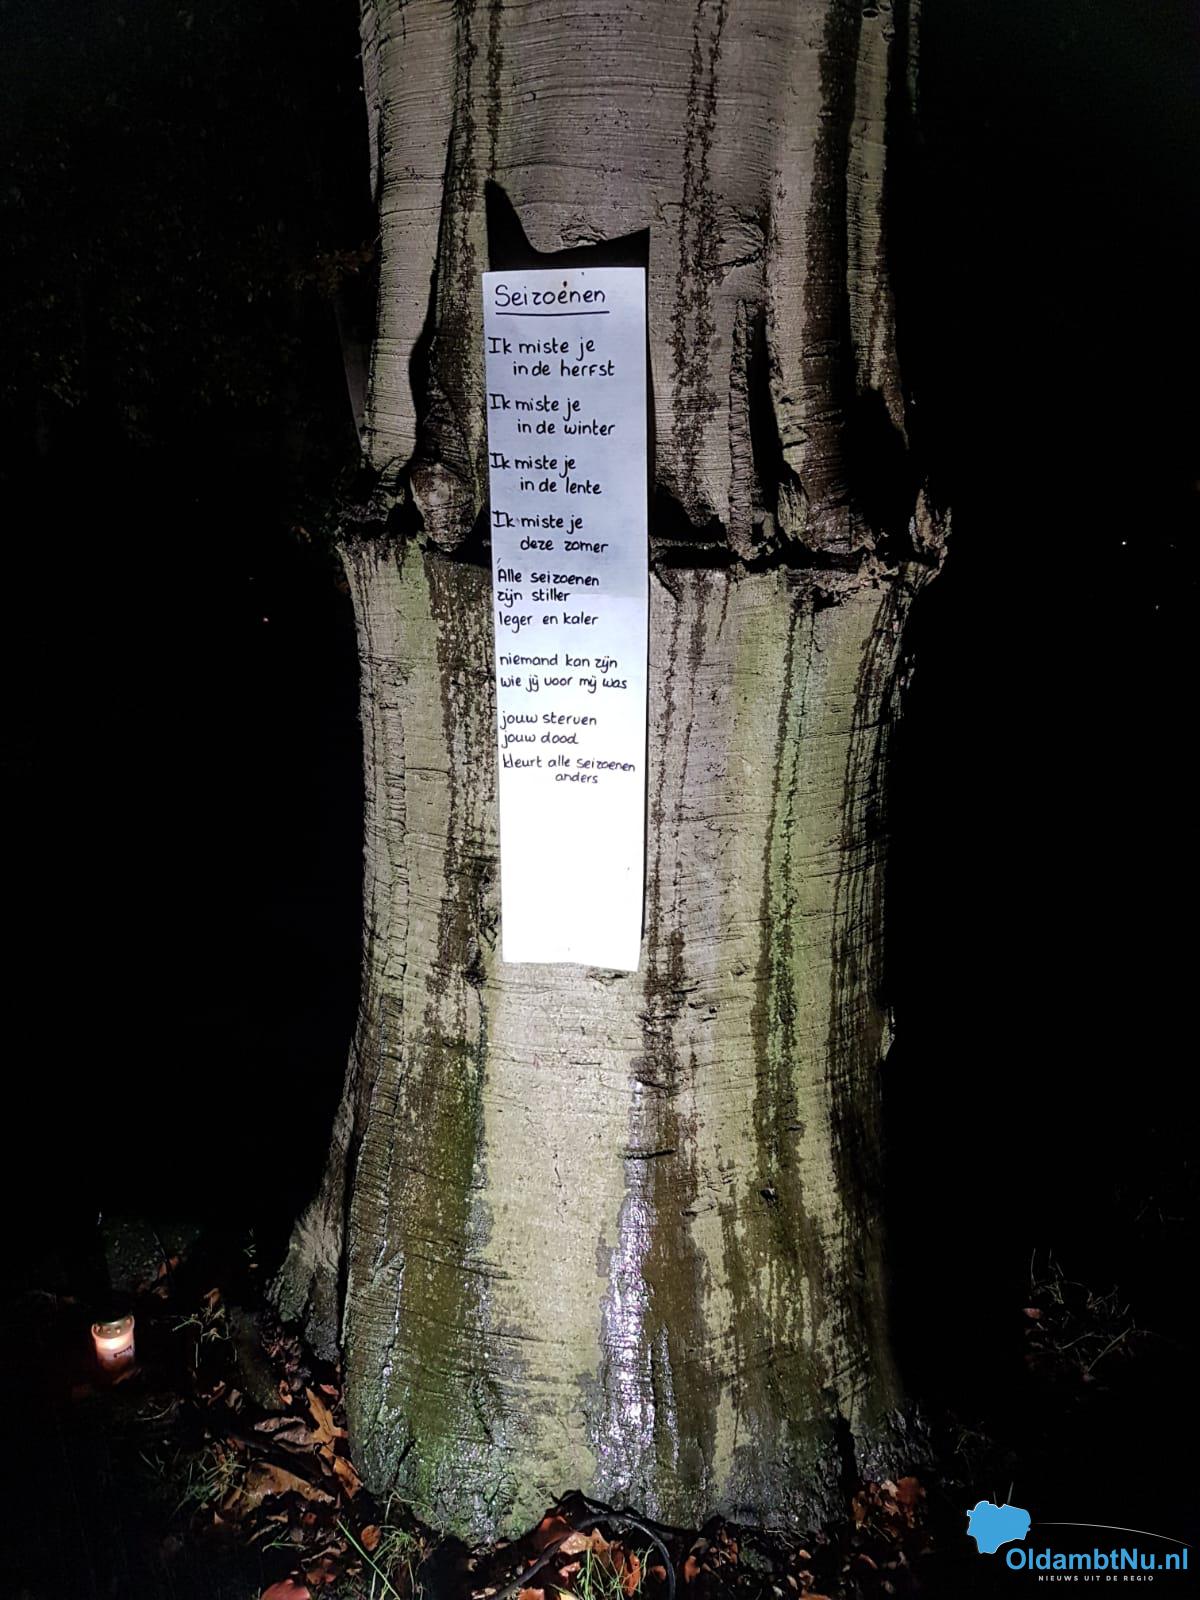 Seizoenen
Ik miste je
in de herfst
Ik miste je
in de winter
Ik miste je
in de lente
Ik miste je
deze zomer
Alle seizoenen
zijn stiller
leger en kaler
niemand kan zijn
wie jij voor mij was
jouw sterven
jouw dood
kleurt alle seizoenen
anders
OldambtNu.nl
NIEUWS UIT DE REGIO